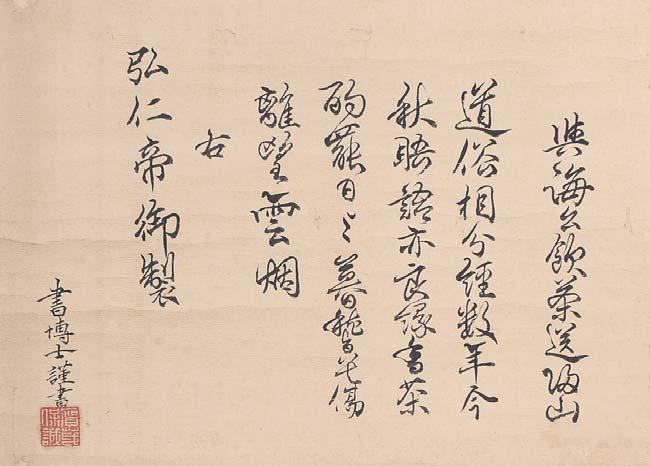 與海公飲茶送歸山
道俗相分經数年今
秋晤語亦良縁香茶
酌罷日云暮稽首傷
離望雲烟
右
弘仁帝御製
書博士謹書